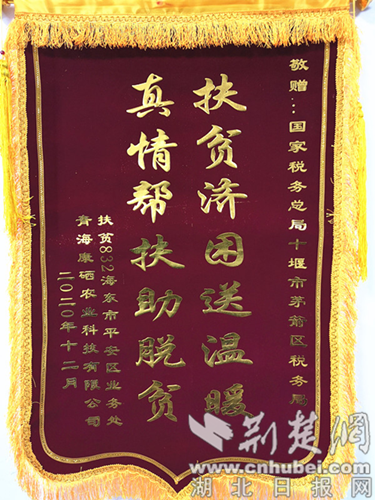 敬赠:国家税务总局十堰市茅箭区税务局
扶贫济困送温暖
真情帮扶助脱贫
扶贫832海东市平安区业务处
青海康硒农业科技有限公司
二〇二〇年十二月
荆楚网
www.cnhubei.com
湖北日报网